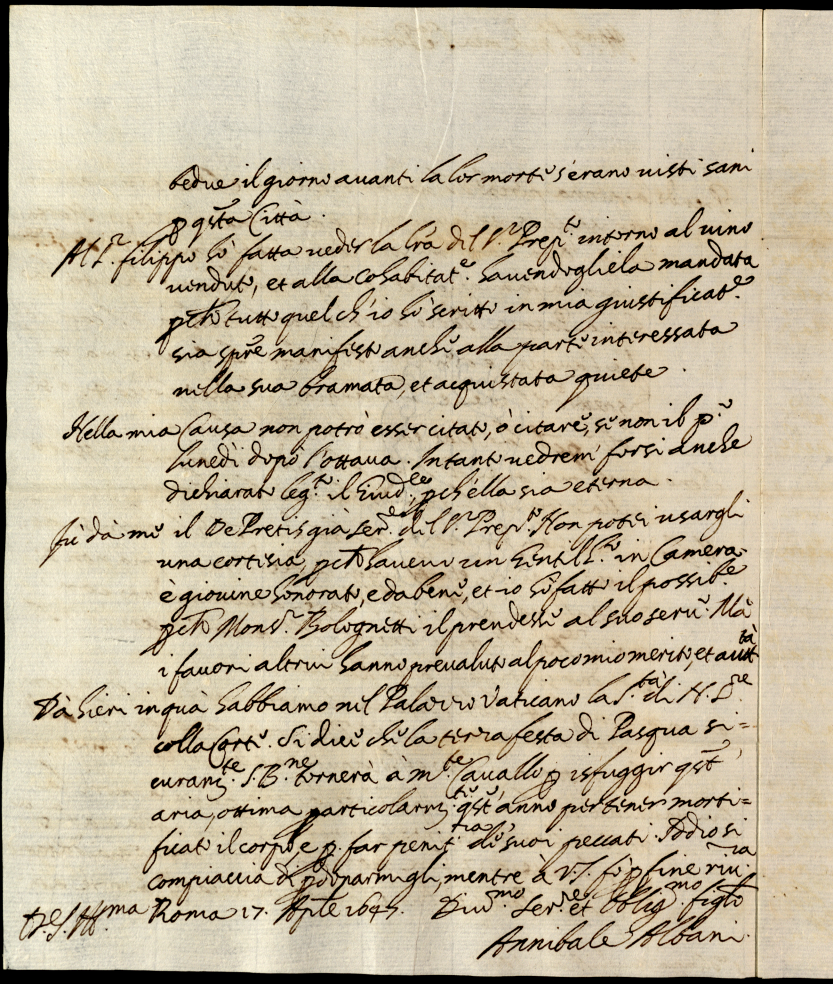 bedue il giorno auanti la lor morte s'erano uisti sani
p qsta Città.
Al Sr. filippo hò fatta ueder la lra del Sr. Prepto. intorno al uino
uenduto, et alla cohabitate. hauendogliela mandata
pche tutto quel ch'io hò scritto in mia giustificate.
sia spre manifesto anche alla parte interessata
nella sua bramata, et acquistata quiete.
Nella mia Causa non potrò esser citato, ò citare, se non il po.
lunedì dopò l'ottaua. Intanto uedremo forsi anche
dichiarato il pche ella sia eterna.
fù dà me il De Pretis già del Sr. Prepto. Non potei usargli
una cortesia, pche haueuo un Gentilho. in Camera.
è giouine honorato, e dabene, et io hò fatto il possibe.
pche Monsr. Bolognetti il prendesse al suo seruo. Mà
i favori altrui hanno preualuto al poco mio merito, et auttta
Dà hieri in quà habbiamo nel Palazzo Vaticano la Sta. di N. Sre
colla Corte. Si dice che la terza festa di Pasqua si=
S. Bne. tornerà à mte. Cauallo p isfuggir qst'
aria, ottima particolarm. qst' anno per tener morti=
ficato il corpo, e p. far penitza. de suoi peccati. Adio si
compiaccia di mentre à VS. fò p fine riuza.
D. V.S. Illma Roma 17. Aprle 1647. Diumo. Serre. et Obligmo. figlo
Annibale Albani.